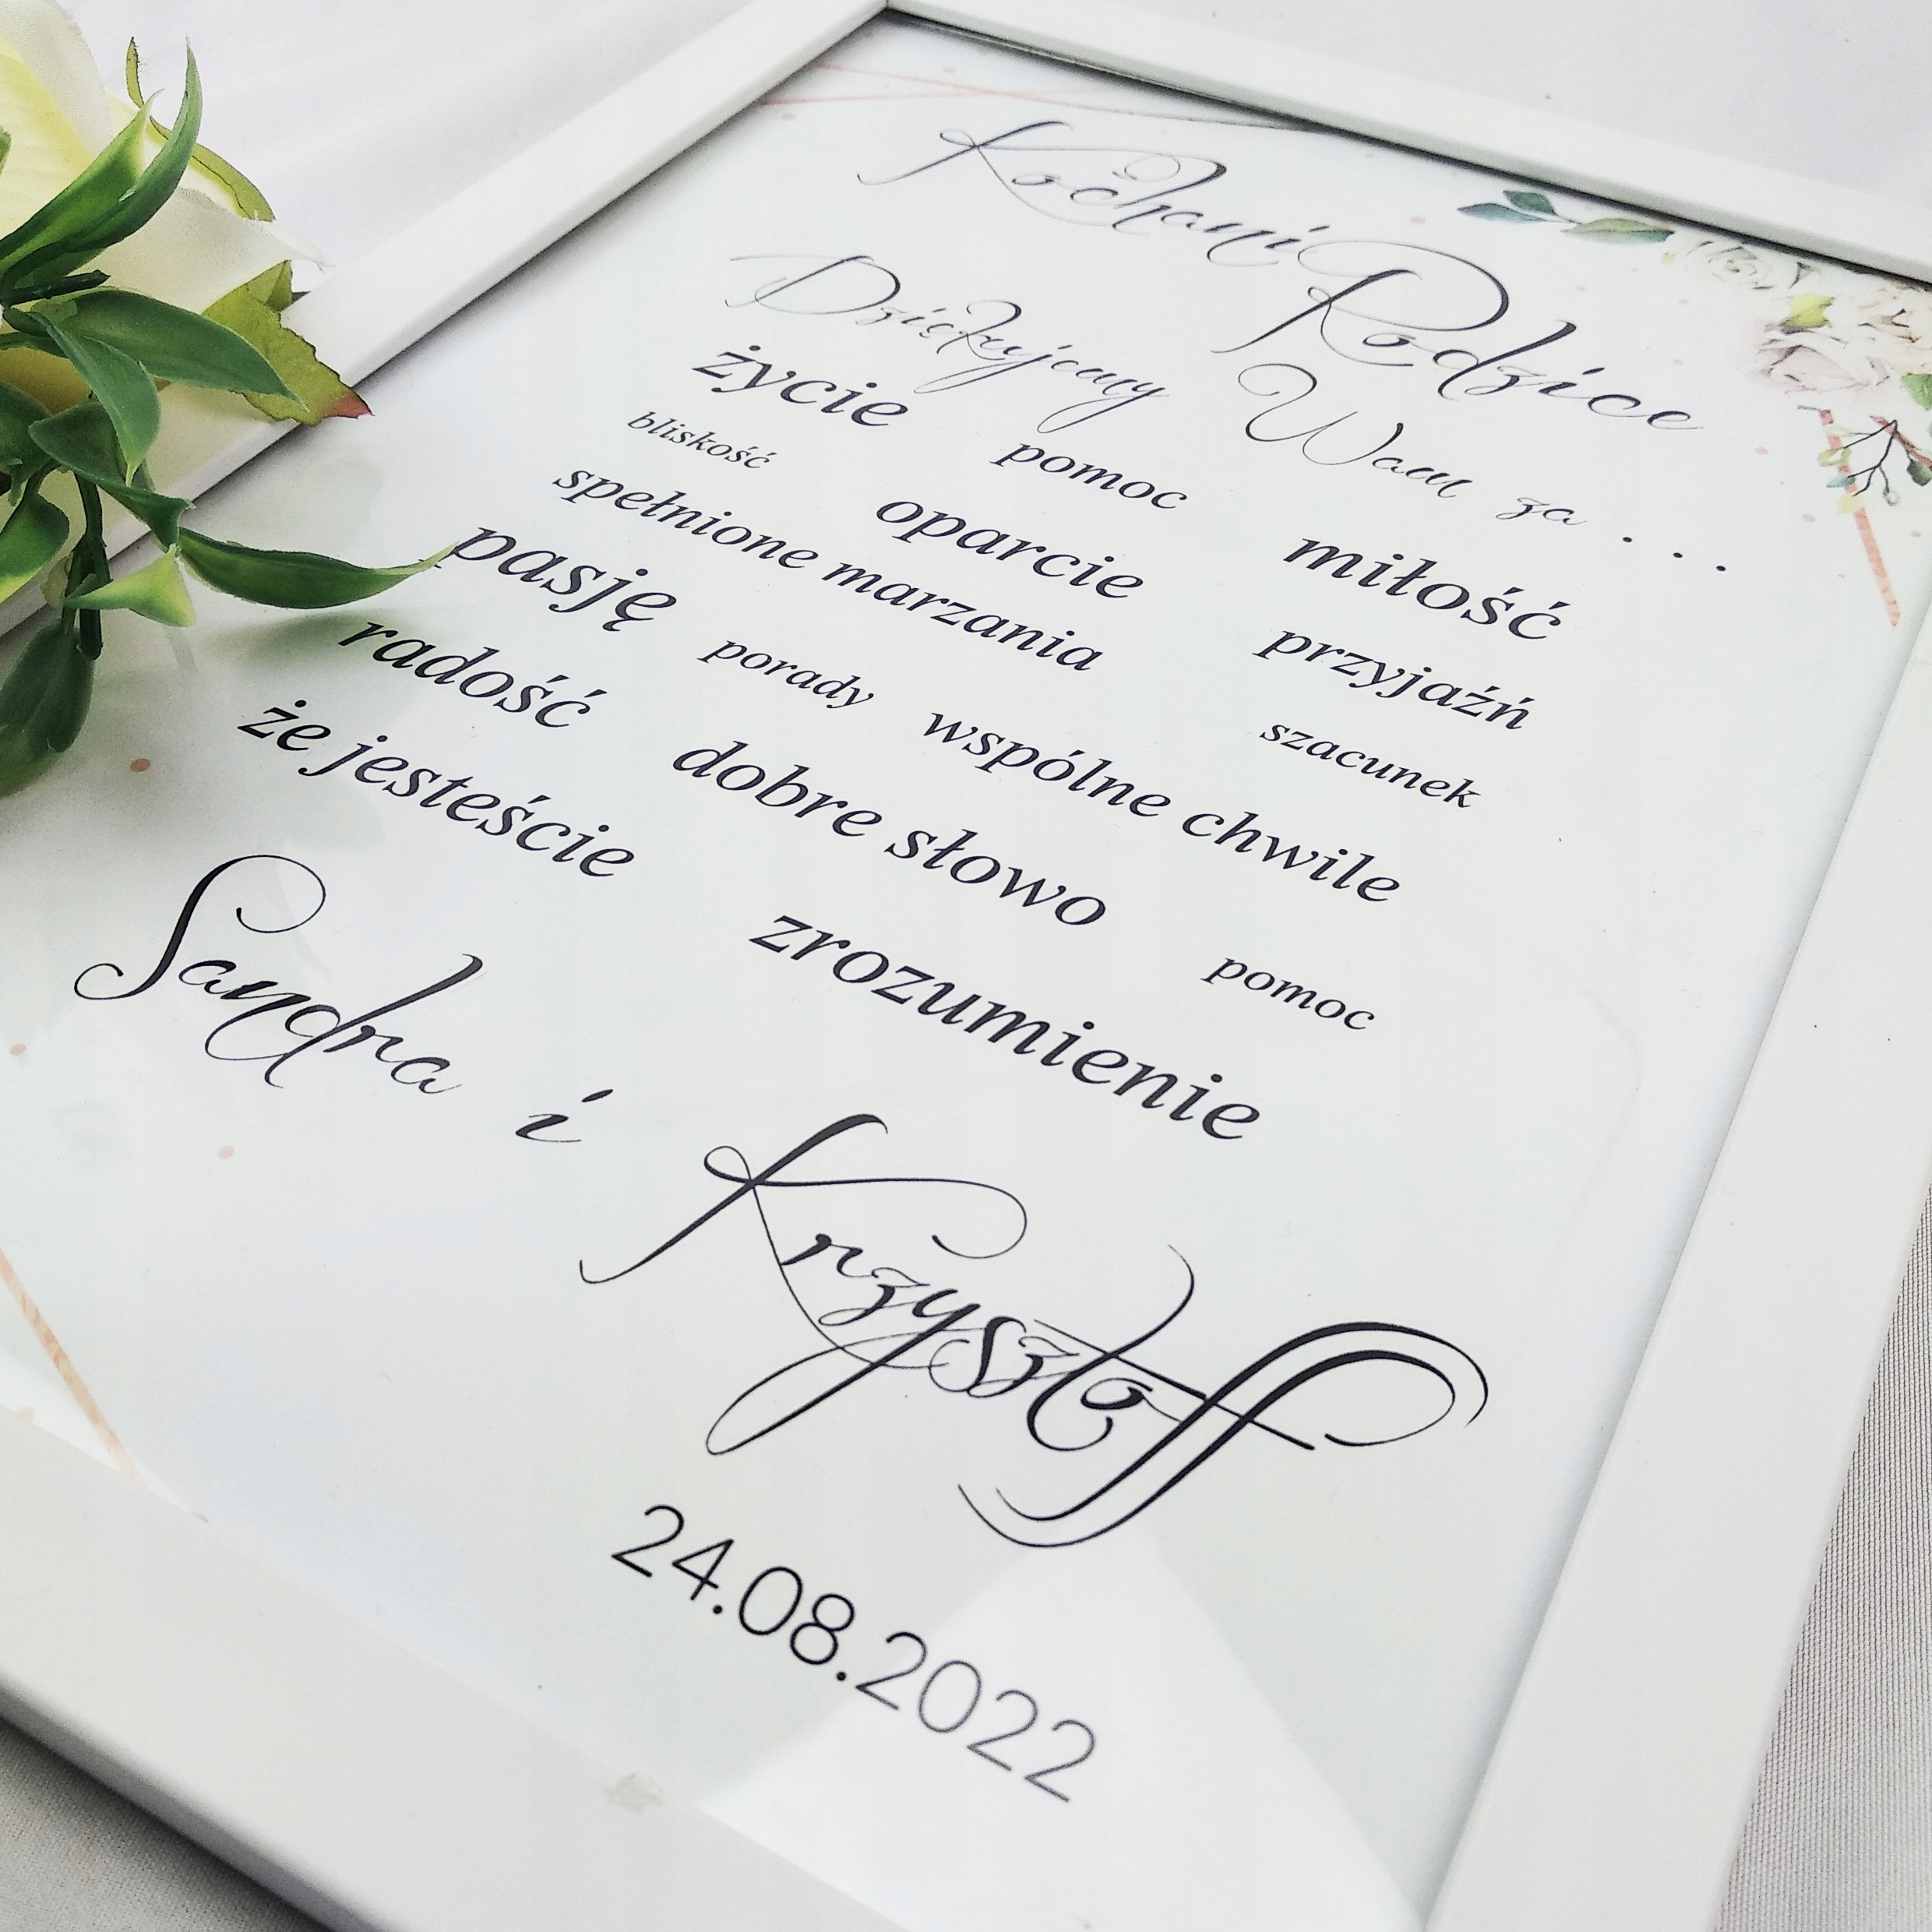 Kochani Rodzice
Dziękujemy Wam za . . .
życie pomoc miłość
bliskość oparcie przyjaźń
spełnione marzania szacunek
pasję porady wspólne chwile
radość dobre słowo pomoc
że jesteście zrozumienie
Sandra i Krzysztoff
24.08.2022